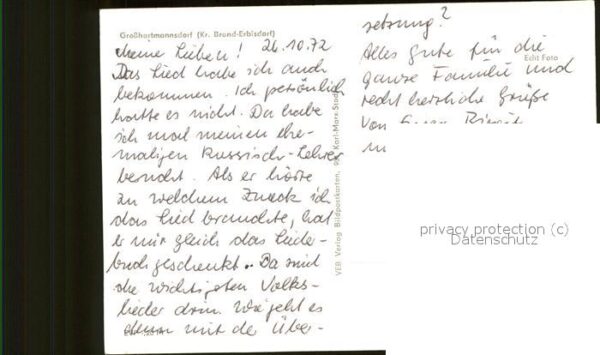 Großhartmannsdorf (Kr. Brand-Erbisdorf)
Meine Lieben! 26.10.72
Das Lied habe ich auch
bekommen. Ich persönlich
hatte es nicht. Da habe
ich mal meinen ehe-
maligen Russisch-Lehrer
besucht. Als er hörte
zu welchem Zweck ich
das Lied brauchte, hat
er mir gleich das Lieder-
buch geschenkt. Da sind
die wichtigsten Volks-
lieder drin. Wie geht es
denn mit der Über-
VEB Verlag Bildpostkarten, Karl-Marx-Stadt
setzung?
Alles Gute für die
ganze Familie und
recht herzliche Grüße
von
Echt Foto
privacy protection (c)
Datenschutz